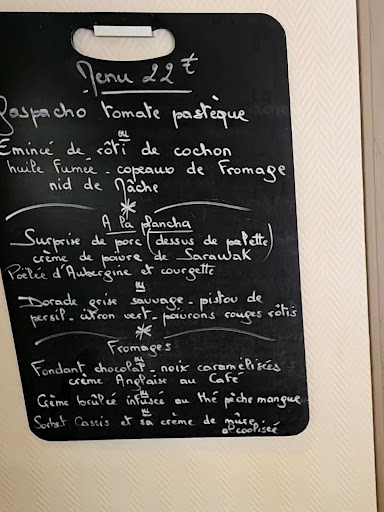 Menu 22 €
Gaspacho tomate pastèque
ou
Emincé de rôti de cochon
huile Fumée - copeaux de Fromage
nid de Mâche
A la plancha
Surprise de porc (dessus de palette)
crème de poivre de Sarawak
Poêlée d'Aubergine et courgette
ou
Dorade grise sauvage - pistou de
persil - citron vert - poivrons rouges rôtis
Fromages
ou
Fondant chocolat - noix caramélisées
crème Anglaise au Café
ou
Crème brûlée infusée au thé pêche mangue
ou
Sorbet Cassis et sa crème de mûre
alcoolisée